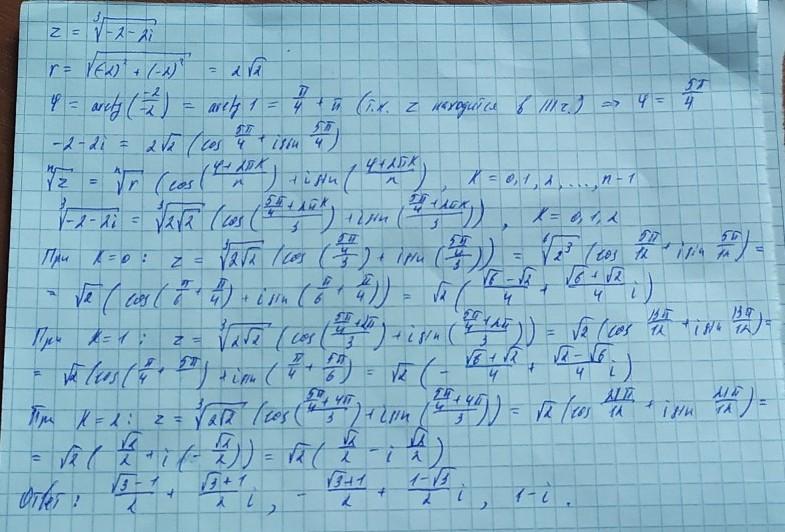 z = ∛(-2-2i)
r = √((-2)² + (-2)²) = 2√2
φ = arctg(-2/-2) = arctg 1 = π/4 + π (т.к. z находится в III ч.) ⇒ φ = 5π/4
-2-2i = 2√2 (cos 5π/4 + i sin 5π/4)
ⁿ√z = ⁿ√r (cos((φ+2πk)/n) + i sin((φ+2πk)/n)), k = 0,1,2,...,n-1
∛(-2-2i) = ∛(2√2) (cos((5π/4+2πk)/3) + i sin((5π/4+2πk)/3)), k = 0,1,2
При k=0: z = ∛(2√2) (cos((5π/4)/3) + i sin((5π/4)/3)) = ⁶√(2³) (cos 5π/12 + i sin 5π/12) =
= √2 (cos(π/6 + π/4) + i sin(π/6 + π/4)) = √2 ((√6-√2)/4 + (√6+√2)/4 i)
При k=1: z = ∛(2√2) (cos((5π/4+2π)/3) + i sin((5π/4+2π)/3)) = √2 (cos 13π/12 + i sin 13π/12) =
= √2 (cos(π/4 + 5π/) + i sin(π/4 + 5π/6) = √2 (- (√6+√2)/4 + (√2-√6)/4 i)
При k=2: z = ∛(2√2) (cos((5π/4+4π)/3) + i sin((5π/4+4π)/3)) = √2 (cos 21π/12 + i sin 21π/12) =
= √2 (√2/2 + i (-√2/2)) = √2 (√2/2 - i √2/2)
Ответ: (√3-1)/2 + (√3+1)/2 i, - (√3+1)/2 + (1-√3)/2 i, 1-i.